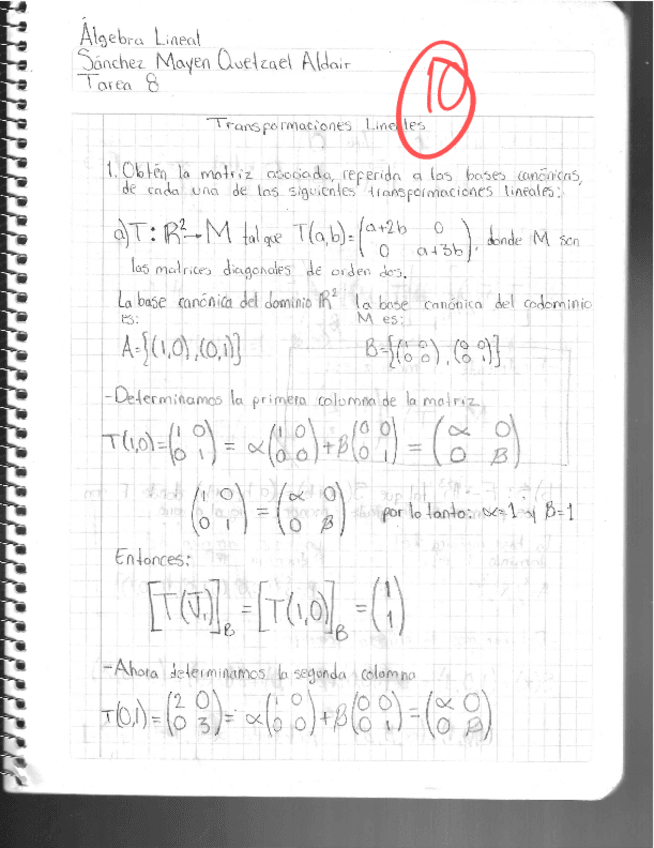 Álgebra Lineal
Sánchez Mayen Quetzael Aldair
Tarea 8
10
Transformaciones Lineales
1. Obtén la matriz asociada, referida a las bases canónicas,
de cada una de las siguientes transformaciones lineales:
a) T: ℝ² → M tal que T(a,b) = (a+2b 0 / 0 a+3b), donde M son
las matrices diagonales de orden dos.
La base canónica del dominio ℝ² es:
A={(1,0),(0,1)}
la base canónica del codominio M es:
B={(1 0 / 0 0), (0 0 / 0 1)}
-Determinamos la primera columna de la matriz
T(1,0) = (1 0 / 0 1) = α(1 0 / 0 0) + β(0 0 / 0 1) = (α 0 / 0 β)
(1 0 / 0 1) = (α 0 / 0 β) por lo tanto: α=1 y β=1
Entonces:
[T(v̄₁)]_B = [T(1,0)]_B = (1 / 1)
-Ahora determinamos la segunda columna
T(0,1) = (2 0 / 0 3) = α(1 0 / 0 0) + β(0 0 / 0 1) = (α 0 / 0 β)